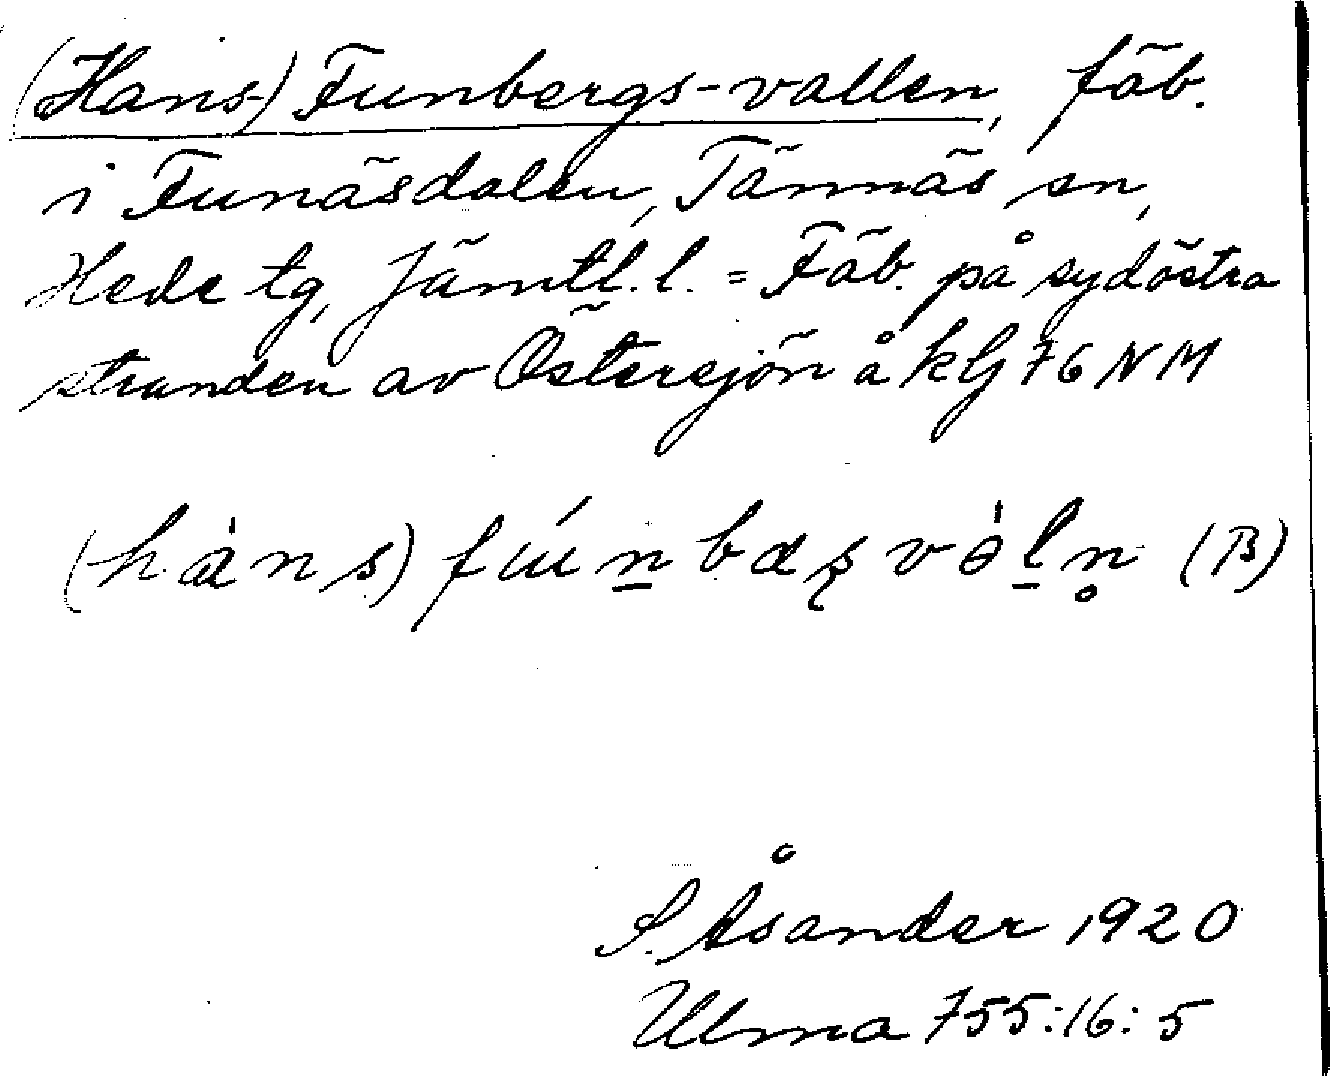 (Hans-) Funbergs-vallen, fäb.
i Funäsdalen, Tännäs sn,
Hede tg, Jämtl. l. = Fäb. på sydöstra
stranden av Östersjön å kbl 76 NM
(hàns) fúṉbaʂvàḻn̥ (B)
S. Åsander 1920
Ulma 755:16:5